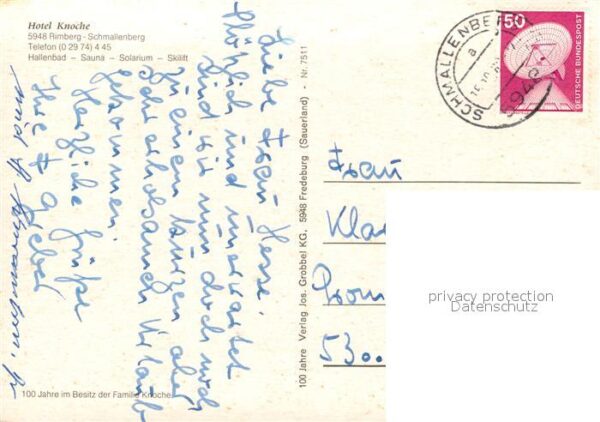 Hotel Knoche
5948 Rimberg - Schmallenberg
Telefon (0 29 74) 4 45
Hallenbad – Sauna – Solarium – Skilift
Liebe Frau Hesse.
Plötzlich und unerwartet
sind wir nun doch noch
zu einem kurzen aber
sehr erholsamen Urlaub
gekommen.
Herzliche Grüße
Ihre
und
100 Jahre im Besitz der Familie Knoche
100 Jahre Verlag Jos. Grobbel KG, 5948 Fredeburg (Sauerland) - Nr. 7511
SCHMALLENBERG
a
5948
50
DEUTSCHE BUNDESPOST
Frau
Kla
Prom
5300
privacy protection
Datenschutz